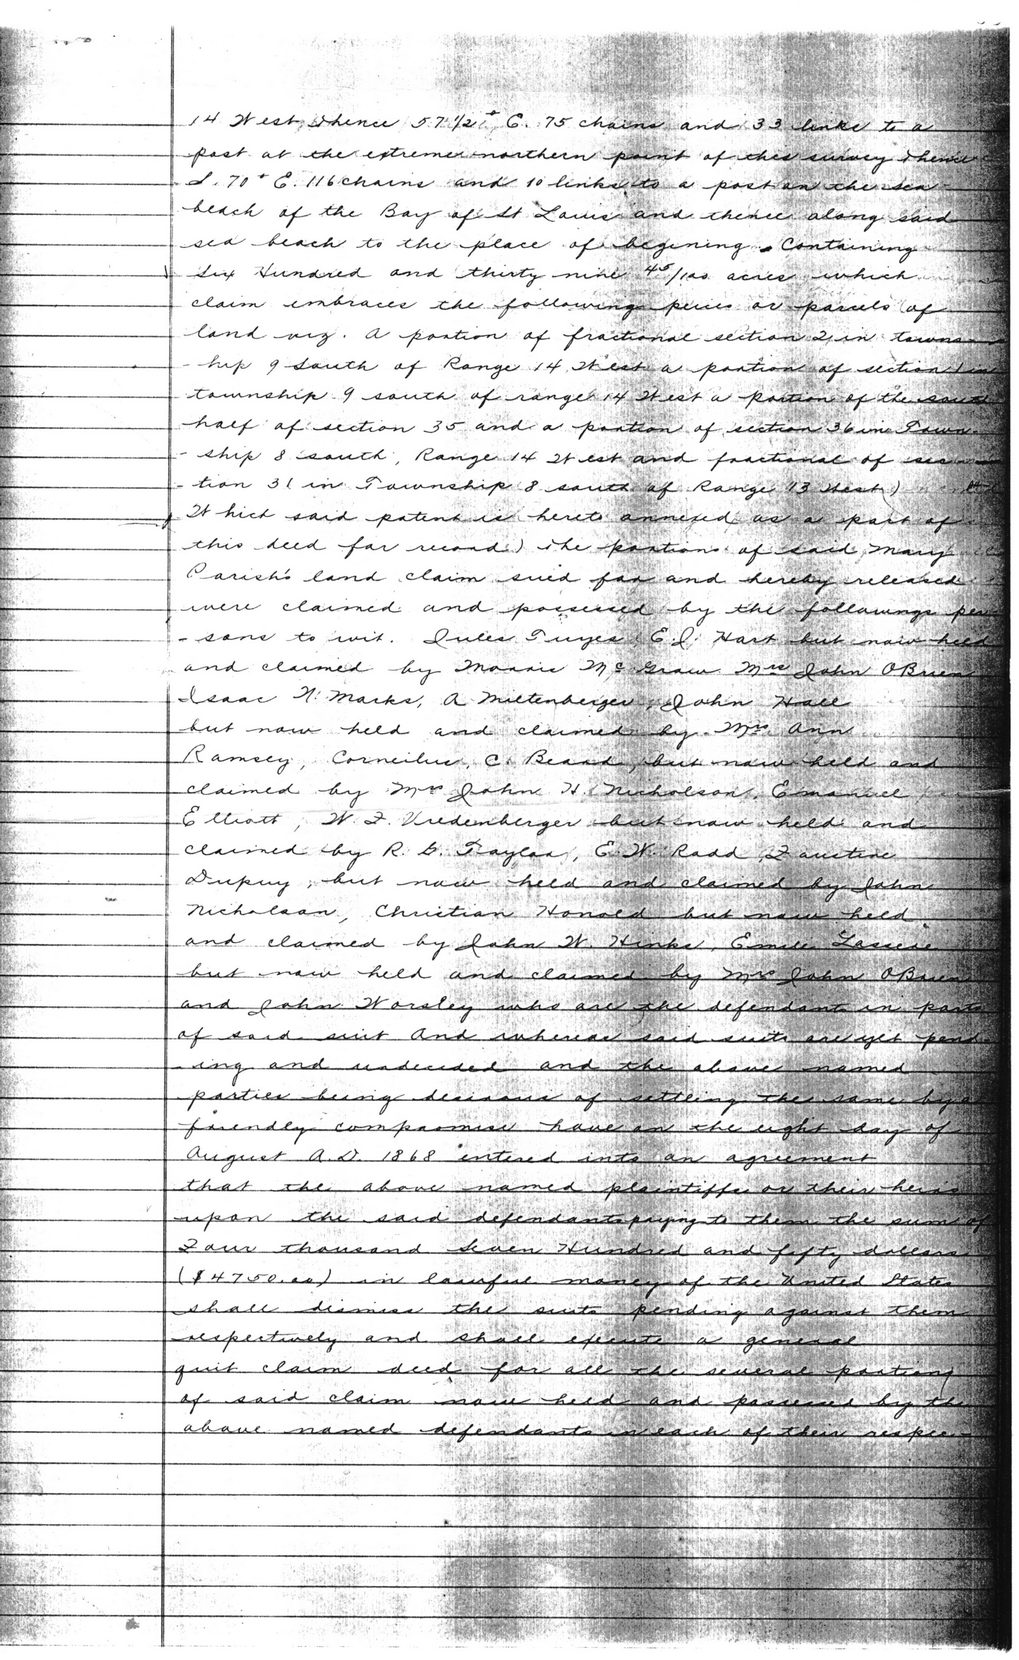 14 West, Thence 57 1/2° E. 75 chains and 33 links to a
post at the extreme northern point of this survey thence
S. 70° E. 116 chains and 10 links to a post on the sea
beach of the Bay of St Louis and thence along said
sea beach to the place of begining. Containing
Six Hundred and thirty nine 45/100 acres which
claim embraces the following peices or parcels of
land viz. A portion of fractional section 2 in towns-
-hip 9 South of Range 14 West a portion of section 1 in
township 9 south of range 14 West a portion of the south
half of section 35 and a portion of section 36 in Town-
-ship 8 south, Range 14 West and fractional of sec-
-tion 31 in Township 8 south of Range 13 West)
Which said patent is hereto annexed as a part of
this deed for record) The portions of said Mary
Parish's land claim sued for and hereby released
were claimed and possessed by the followings per-
-sons to wit. Jules Tuyes, E. J. Hart but now held
and claimed by Morris McGraw Mrs John OBrien
Isaac N. Marks, A Miltenberger, John Hall
but now held and claimed by Mrs Ann
Ramsey, Corneilius, C. Beard, but now held and
claimed by Mrs John H. Nicholson, Emanuel
Elliott, W. F. Vredenberger but now held and
claimed by R. G. Taylor, E. W. Rodd, Faustine
Dupuy, but now held and claimed by John
Nicholson, Christian Honold but now held
and claimed by John W. Hinks, Emile Lassere
but now held and claimed by Mrs John OBrien
and John Worsley who are the defendants in parts
of said suit And whereas said suits are yet pend-
-ing and undecided and the above named
parties being desirous of settling the same by a
friendly compromise have on the eight day of
August A.D. 1868 entered into an agreement
that the above named plaintiffs or their heirs
upon the said defendants paying to them the sums of
Four thousand Seven Hundred and fifty dollars
($4750.00) in lawful money of the United States
shall dismiss the suits pending against them
respectively and shall execute a general
quit claim deed for all the several portions
of said claim now held and possessed by the
above named defendants in each of their respec-